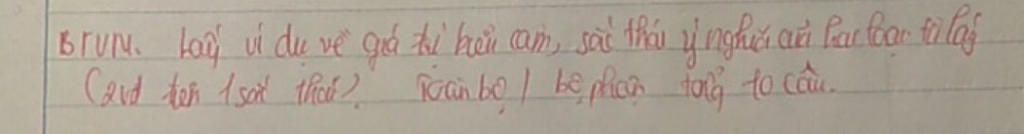 BTVN. Lấy ví dụ về giá trị biểu cảm, sắc thái ý nghĩa của các loại từ láy
(2vd trên 1 sắc thái). Toàn bộ / bộ phận từ láy to câu.